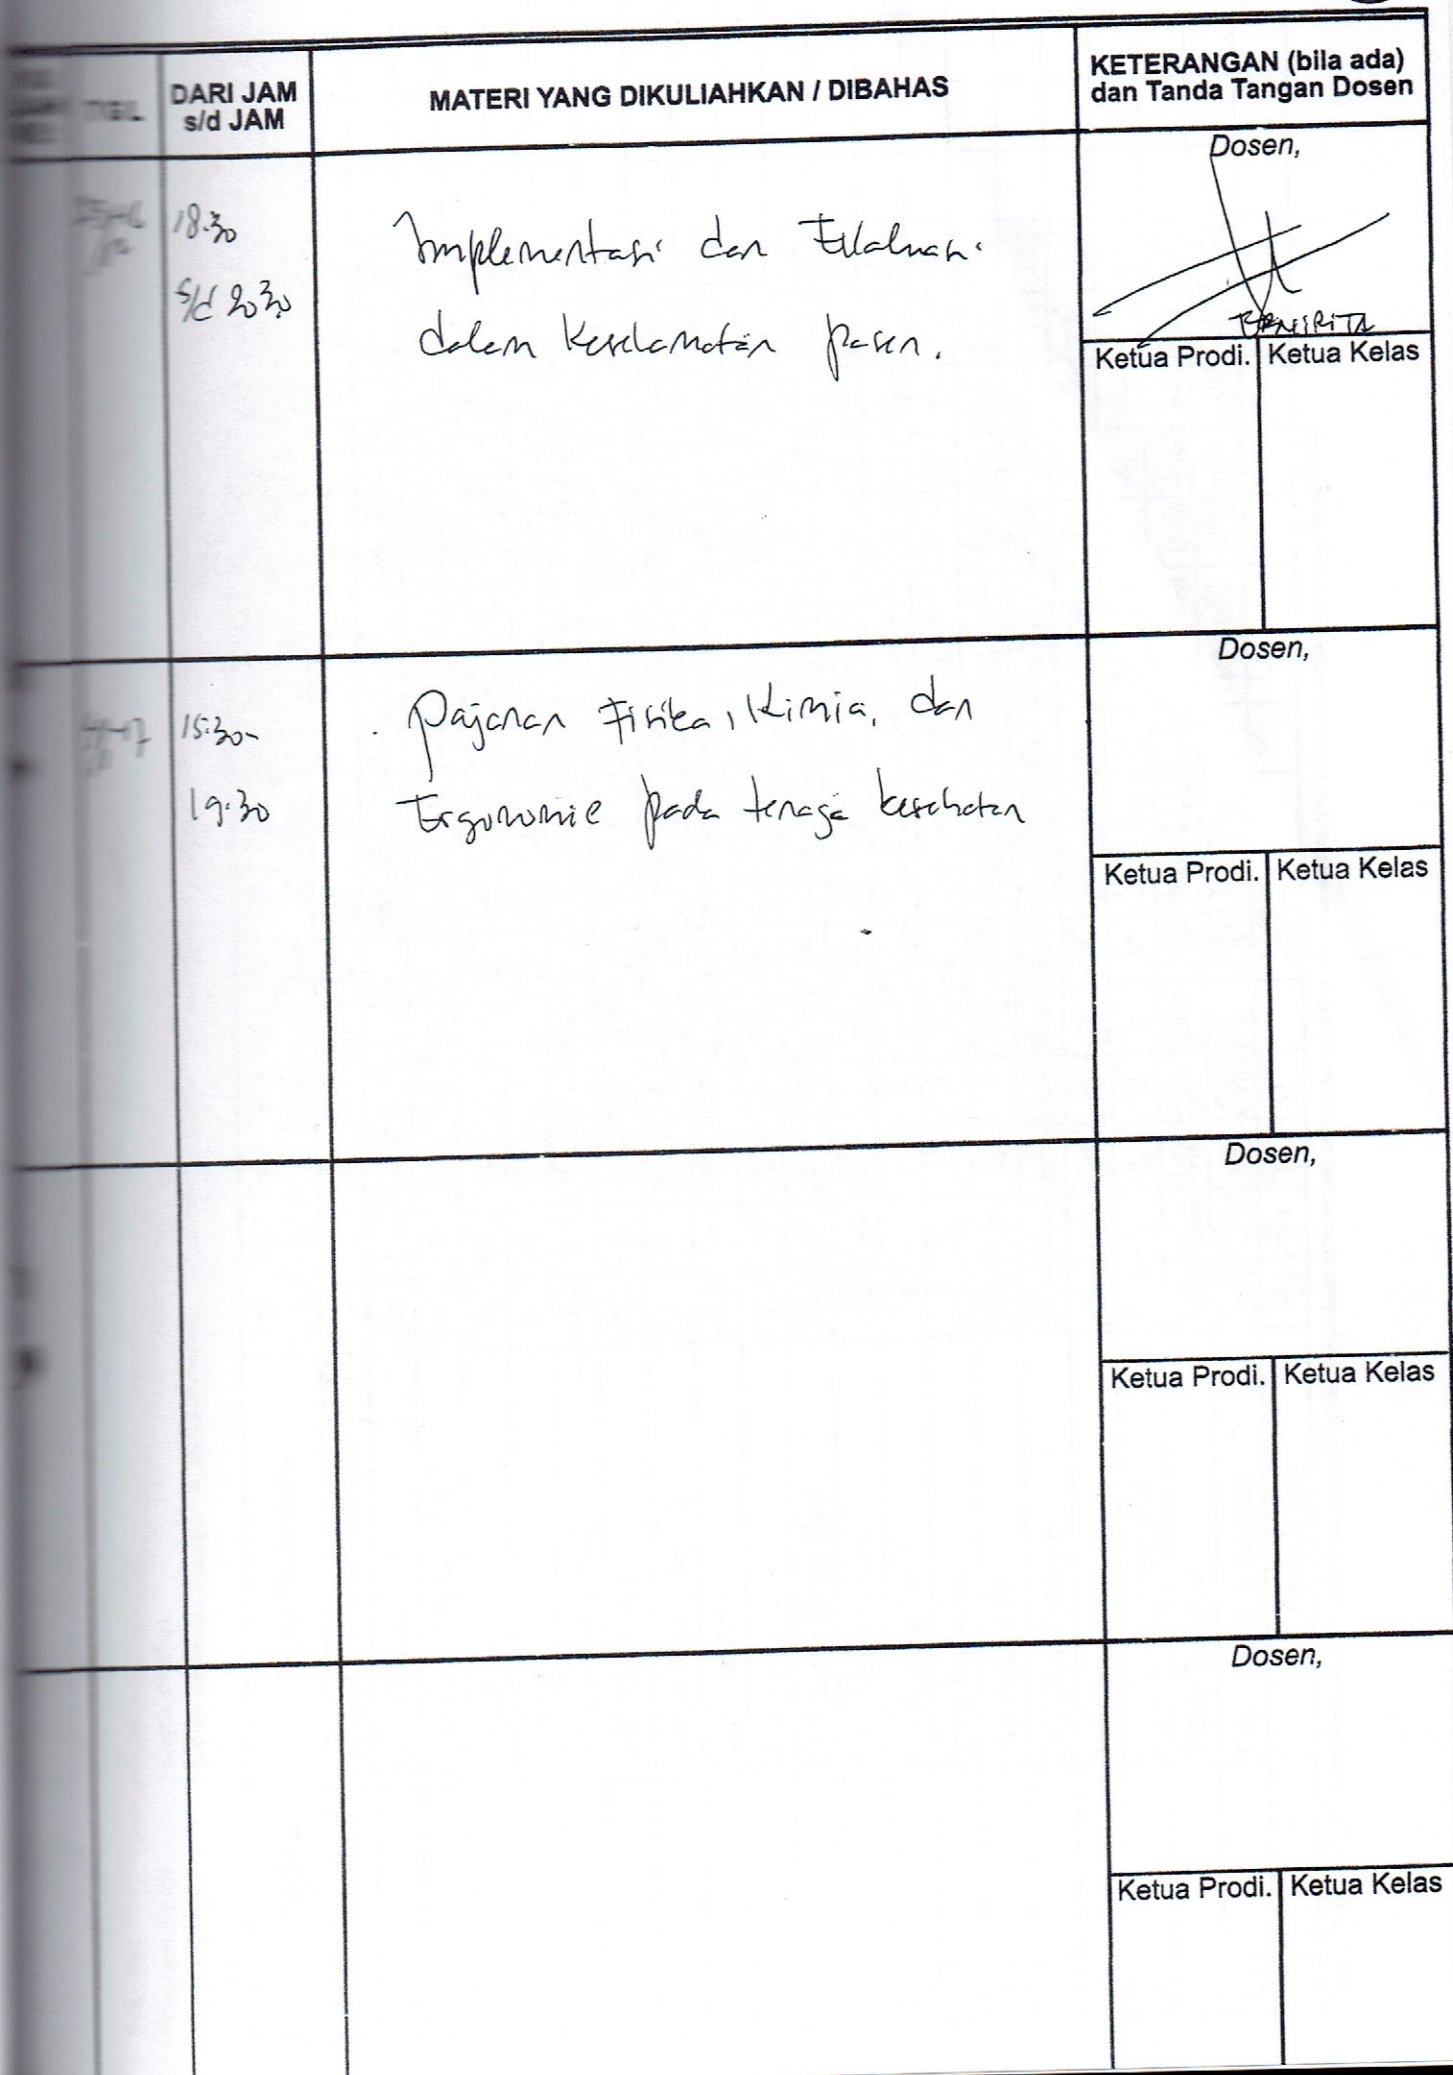 TGL
DARI JAM
s/d JAM
MATERI YANG DIKULIAHKAN / DIBAHAS
KETERANGAN (bila ada)
dan Tanda Tangan Dosen
18.30
s/d 2030
Implementasi dan Evaluasi
dalam Keselamatan pasien.
Dosen,
Ketua Prodi. Ketua Kelas
15:30-
19.30
Pajanan Fisika, Kimia, dan
Ergonomie pada tenaga kesehatan
Dosen,
Ketua Prodi. Ketua Kelas
Dosen,
Ketua Prodi. Ketua Kelas
Dosen,
Ketua Prodi. Ketua Kelas